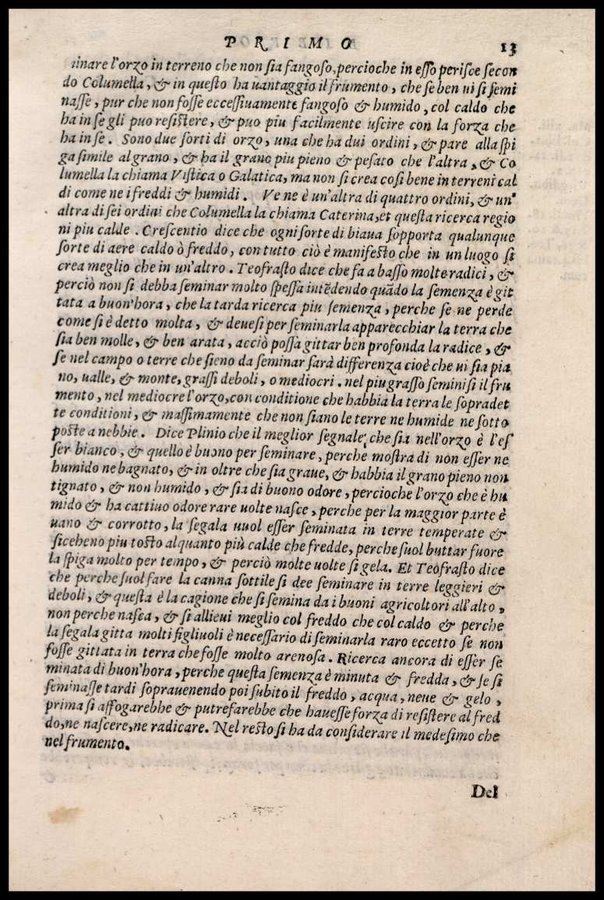 PRIMO 13
inare l'orzo in terreno che non sia fangoso, percioche in esso perisce secon
do Columella, & in questo ha uantaggio il frumento, che se ben ui si semi
nasse, pur che non fosse eccessiuamente fangoso & humido, col caldo che
ha in se gli puo resistere, & puo piu facilmente uscire con la forza che
ha in se. Sono due sorti di orzo, una che ha dui ordini, & pare alla spi
ga simile al grano, & ha il grano piu pieno & pesato che l'altra, & Co
lumella la chiama Vistica o Galatica, ma non si crea cosi bene in terreni cal
di come ne i freddi & humidi. Ve ne è un'altra di quattro ordini, & un'
altra di sei ordini che Columella la chiama Caterina, et questa ricerca regio
ni piu calde. Crescentio dice che ogni sorte di biaua sopporta qualunque
sorte di aere caldo ò freddo, con tutto ciò è manifesto che in un luogo si
crea meglio che in un'altro. Teofrasto dice che fa a basso molte radici, &
perciò non si debba seminar molto spessa intēdendo quādo la semenza è git
tata a buon'hora, che la tarda ricerca piu semenza, perche se ne perde
come si è detto molta, & deuesi per seminarla apparecchiar la terra che
sia ben molle, & ben arata, acciò possa gittar ben profonda la radice, &
se nel campo o terre che sieno da seminar sarà differenza cioè che ui sia pia
no, ualle, & monte, grassi deboli, o mediocri. nel piu grasso semini si il fru
mento, nel mediocre l'orzo, con conditione che habbia la terra le sopradet
te conditioni, & massimamente che non siano le terre ne humide ne sotto
poste a nebbie. Dice Plinio che il meglior segnale, che sia nell'orzo è l'es
ser bianco, & quello è buono per seminare, perche mostra di non esser ne
humido ne bagnato, & in oltre che sia graue, & habbia il grano pieno non
tignato, & non humido, & sia di buono odore, percioche l'orzo che è hu
mido & ha cattiuo odore rare uolte nasce, perche per la maggior parte è
uano & corrotto, la segala uuol esser seminata in terre temperate &
siceheno piu tosto alquanto più calde che fredde, perche suol buttar fuore
la spiga molto per tempo, & perciò molte uolte si gela. Et Teofrasto dice
che perche suol fare la canna sottile si dee seminare in terre leggieri &
deboli, & questa è la cagione che si semina da i buoni agricoltori all'alto,
non perche nasca, & si allieui meglio col freddo che col caldo & perche
la segala gitta molti figliuoli è necessario di seminarla raro eccetto se non
fosse gittata in terra che fosse molto arenosa. Ricerca ancora di esser se
minata di buon'hora, perche questa semenza è minuta & fredda, & se si
seminasse tardi soprauenendo poi subito il freddo, acqua, neue & gelo,
prima si affogarebbe & putrefarebbe che hauesse forza di resistere al fred
do, ne nascere, ne radicare. Nel resto si ha da considerare il medesimo che
nel frumento.
Del